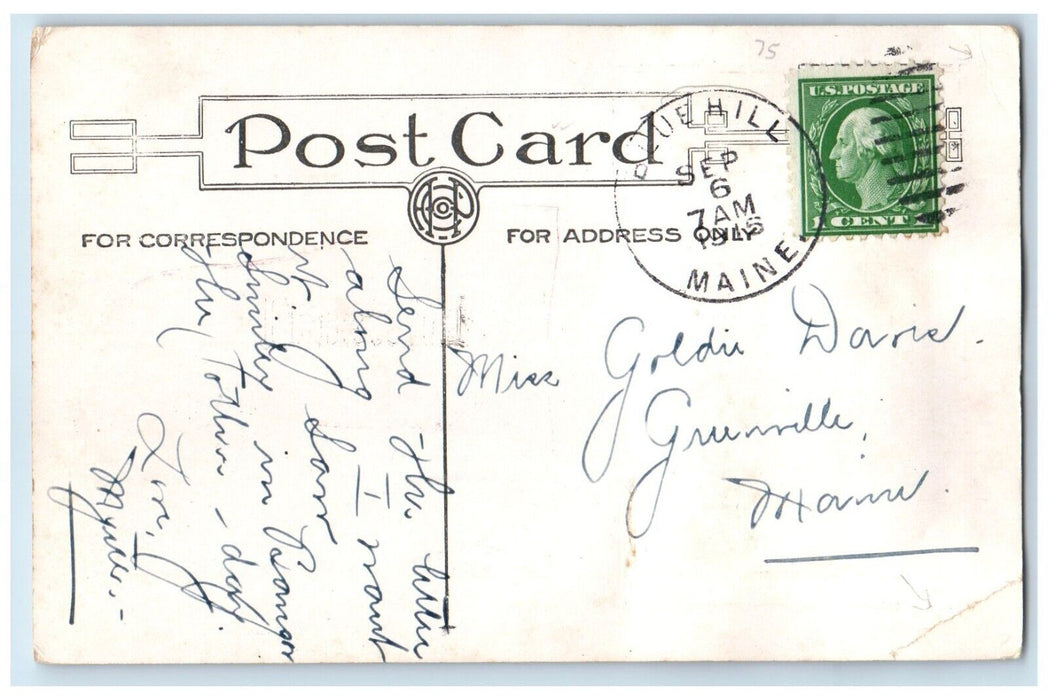 75
Post Card
FOR CORRESPONDENCE
FOR ADDRESS ONLY
BLUE HILL
SEP
6
7 AM
MAINE.
U.S. POSTAGE
1 CENT
Send the letter
along I want
it, Saw
Smiley in Bangor
the tother - day.
Love,
Myrtle. -
Miss Goldie Davis.
Greenville,
Maine.